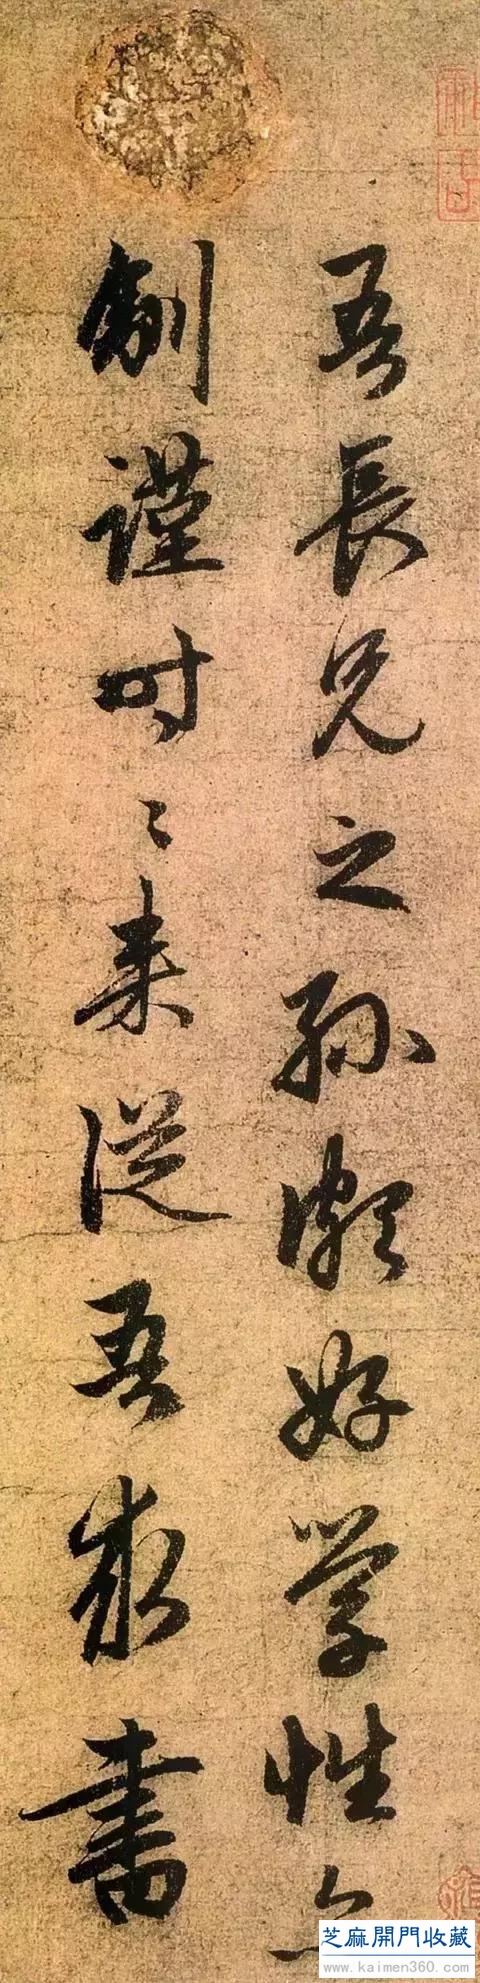 吾長兄之孫頗好学性
謹時〻来從吾求書
芝麻開門收藏
www.kaimen360.com